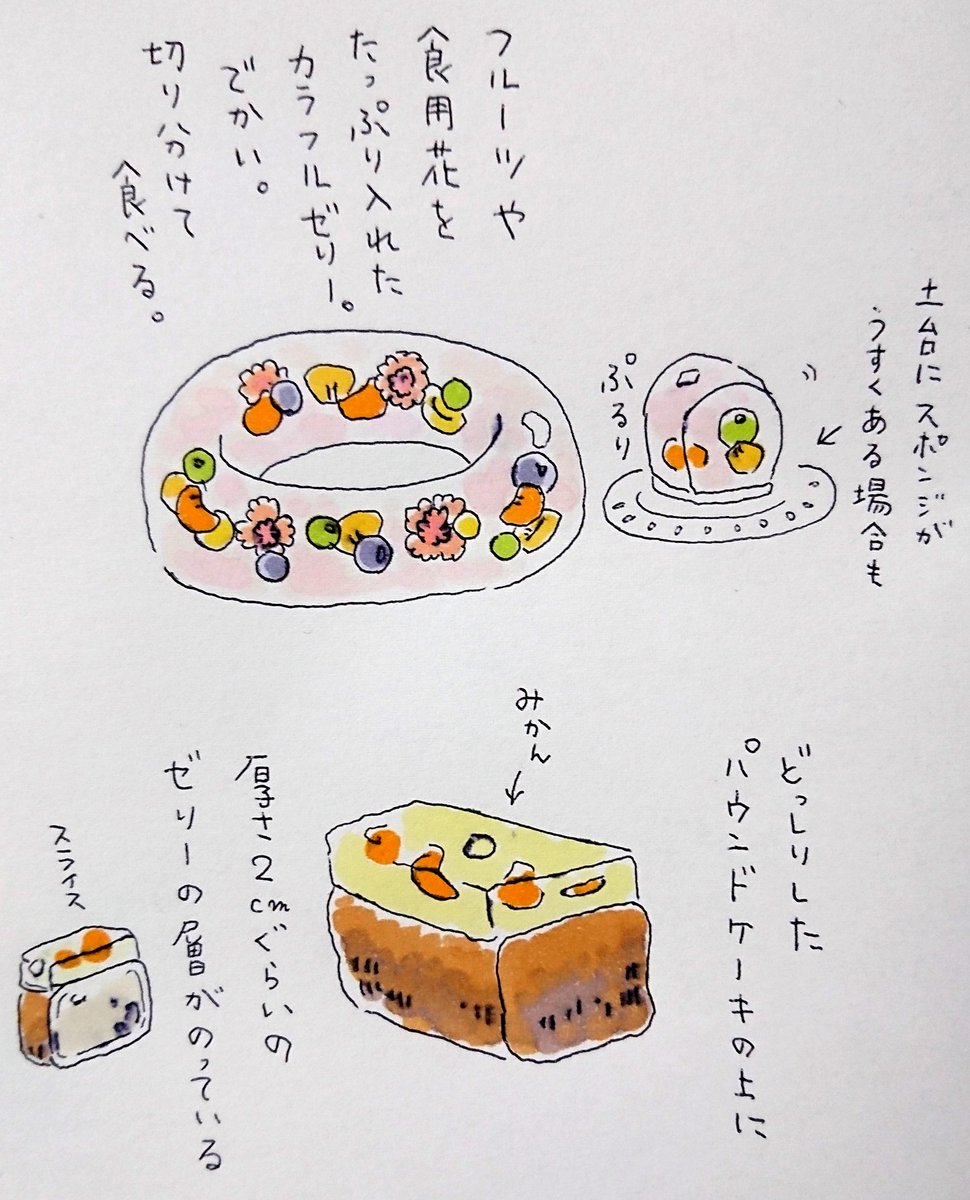 フルーツや
食用花を
たっぷり入れた
カラフルゼリー。
でかい。
切り分けて
食べる。
土台にスポンジが
うすくある場合も
ぷるり
みかん
どっしりした
パウンドケーキの上に
厚さ2cmぐらいの
ゼリーの層がのっている
スライス